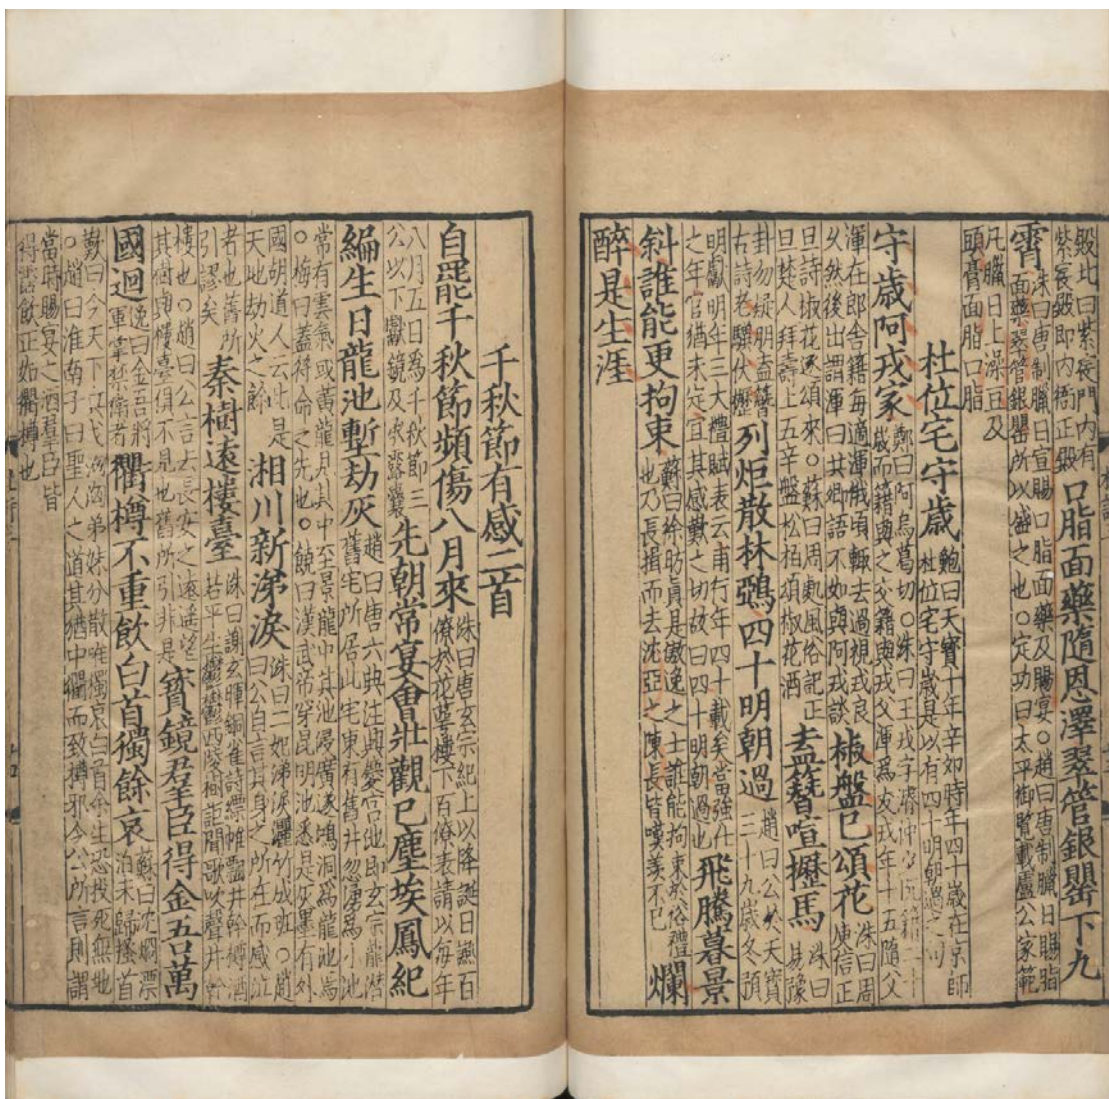 殿北曰紫宸門內有
紫宸殿即內衙正殿
口脂面藥隨恩澤翠管銀罌下九
霄
洙曰唐制臘日宣賜口脂面藥及賜宴○趙曰唐制臘日賜脂
面藥翠管銀罌所以盛之也○定功曰太平御覽載盧公家範
凡臘日上澡豆及
頭膏面脂口脂
杜位宅守歲
鮑曰天寶十年辛卯時年四十歲在京師
杜位宅守歲是以有四十明朝過之句
守歲阿戎家
鄭曰阿烏葛切○洙曰王戎字濬仲阮籍
歲而籍與之交籍與戎父渾為友戎年十五隨父
渾在郎舍籍每適渾俄頃輒去過視戎良
久然後出謂渾曰共卿語不如與阿戎談
椒盤已頌花
洙曰周
庾信正
旦詩椒花逐頌來○蘇曰周處風俗記正
旦楚人拜壽上五辛盤松柏頌椒花酒
盍簪喧櫪馬
洙曰
易豫
卦勿疑朋盍簪
古詩老驥伏櫪
列炬散林鵶四十明朝過
趙曰公於天寶
三十九歲冬預
明獻明年三大禮賦表云甫行年四十載矣當強仕
之年官猶未定宜其感歎之切故曰四十明朝過也
飛騰暮景
斜誰能更拘束
蘇曰徐昉真是遨逸之士誰能拘束於俗禮
也乃長揖而去沈亞之陳長皆嘆羨不已
爛
醉是生涯
千秋節有感二首
自罷千秋節頻傷八月來
洙曰唐玄宗紀上以降誕日燕百
僚於花萼樓下百僚表請以每年
八月五日為千秋節三
公以下獻鏡及承露囊
先朝常宴會壯觀已塵埃鳳紀
編生日龍池塹劫灰
趙曰唐六典注興慶宮池即玄宗龍潛
舊宅所居此宅東有舊井忽湧為小池
常有雲氣或黃龍見其中至景龍中其池浸廣遂澒洞為龍池焉
○梅曰蓋符命之先也○饒曰漢武帝穿昆明池悉是灰墨有外
國胡道人云此是
天地劫火之餘
湘川新涕淚
洙曰二妃涕淚灑竹成斑○趙
曰公自言其身之所在而感泣
者也舊所
引謬矣
秦樹遠樓臺
洙曰謝玄暉銅雀詩縹帷飄井幹罇酒
若平生鬱鬱西陵樹詎聞歌吹聲井幹
樓也○趙曰公言去長安之遠遙望
其樹與樓臺俱不見也舊所引非是
寶鏡羣臣得金吾萬
國迴
逸曰金吾將
軍掌禁衛者
衢樽不重飲白首獨餘哀
蘇曰沈炯漂
泊未歸搔首
歎曰今天下干戈洶洶弟妹分散唯獨哀白首余生恐投死無地
○趙曰淮南子曰聖人之道其猶中衢而致樽邪今公所言則謂
當時賜宴之酒羣臣皆
得霑飲正如衢樽也